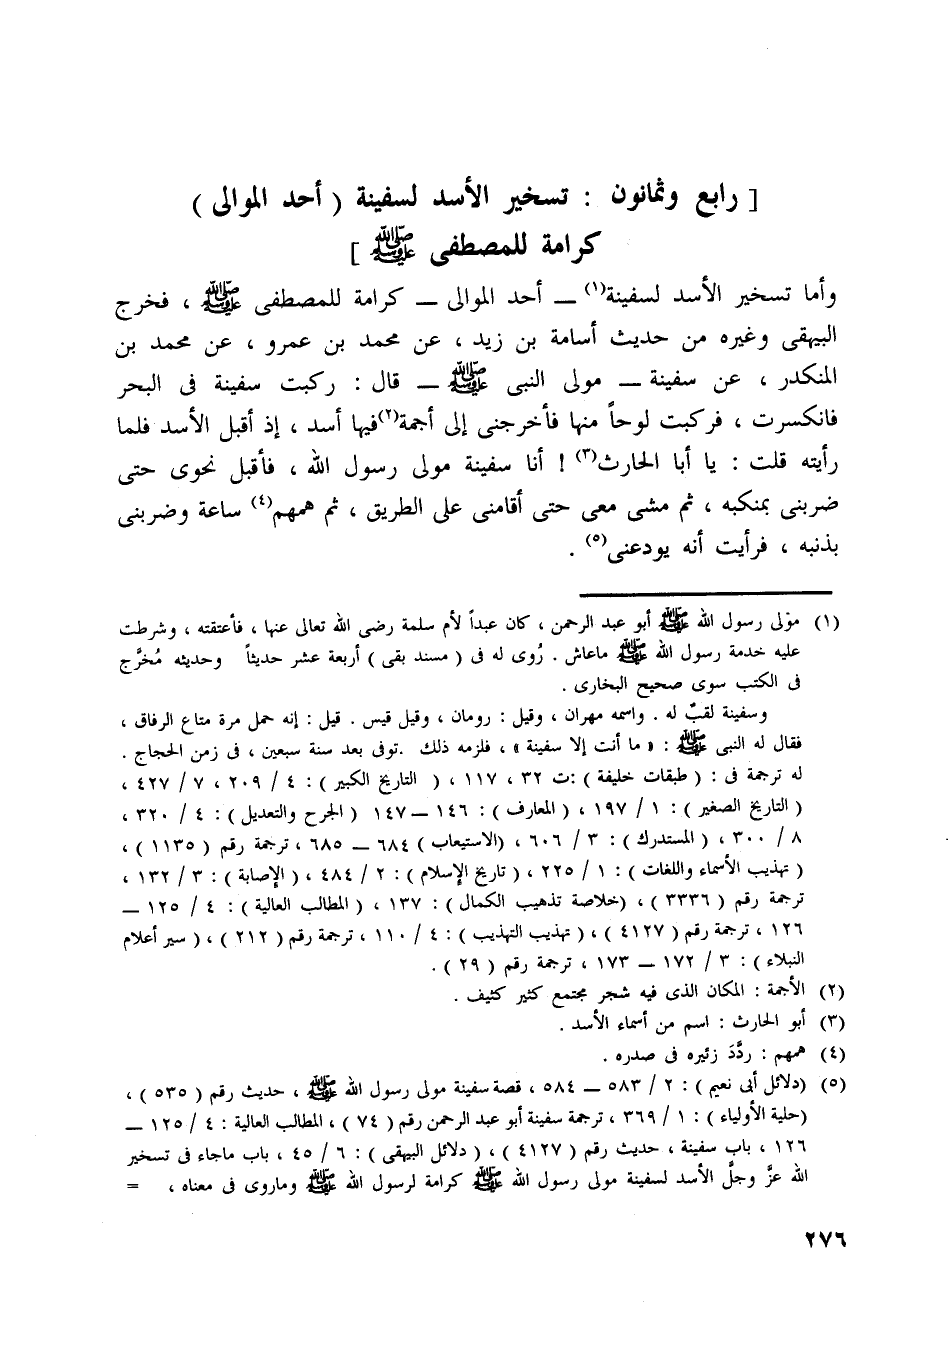 [ رابع وثمانون : تسخير الأسد لسفينة ( أحد الموالى )
كرامة للمصطفى ﷺ ]
وأما تسخير الأسد لسفينة(١) ــ أحد الموالى ــ كرامة للمصطفى ﷺ ، فخرج
البيهقى وغيره من حديث أسامة بن زيد ، عن محمد بن عمرو ، عن محمد بن
المنكدر ، عن سفينة ــ مولى النبى ﷺ ــ قال : ركبت سفينة فى البحر
فانكسرت ، فركبت لوحاً منها فأخرجنى إلى أجمة(٢)فيها أسد ، إذ أقبل الأسد فلما
رأيته قلت : يا أبا الحارث(٣) ! أنا سفينة مولى رسول الله ، فأقبل نحوى حتى
ضربنى بمنكبه ، ثم مشى معى حتى أقامنى على الطريق ، ثم همهم(٤) ساعة وضربنى
بذنبه ، فرأيت أنه يودعنى(٥) .
(١) مولى رسول الله ﷺ أبو عبد الرحمن ، كان عبداً لأم سلمة رضى الله تعالى عنها ، فأعتقته ، وشرطت
عليه خدمة رسول الله ﷺ ماعاش . رُوى له فى ( مسند بقى ) أربعة عشر حديثاً وحديثه مُخرَّج
فى الكتب سوى صحيح البخارى .
وسفينة لقبٌ له . واسمه مهران ، وقيل : رومان ، وقيل قيس . قيل : إنه حمل مرة متاع الرفاق ،
فقال له النبى ﷺ : « ما أنت إلا سفينة » ، فلزمه ذلك .توفى بعد سنة سبعين ، فى زمن الحجاج .
له ترجمة فى : ( طبقات خليفة ) :ت ٣٢ ، ١١٧ ، ( التاريخ الكبير ) : ٤ / ٢٠٩ ، ٧ / ٤٢٧ ،
( التاريخ الصغير ) : ١ / ١٩٧ ، ( المعارف ) : ١٤٦ ــ ١٤٧ ( الجرح والتعديل ) : ٤ / ٣٢٠ ،
٨ / ٣٠٠ ، ( المستدرك ) : ٣ / ٦٠٦ ، (الاستيعاب ) ٦٨٤ ــ ٦٨٥ ، ترجمة رقم ( ١١٣٥ ) ،
( تهذيب الأسماء واللغات ) : ١ / ٢٢٥ ، ( تاريخ الإسلام ) : ٢ / ٤٨٤ ، ( الإصابة ) : ٣ / ١٣٢ ،
ترجمة رقم ( ٣٣٣٦ ) ، (خلاصة تذهيب الكمال ) : ١٣٧ ، ( المطالب العالية ) : ٤ / ١٢٥ ــ
١٢٦ ، ترجمة رقم ( ٤١٢٧ ) ، ( تهذيب التهذيب ) : ٤ / ١١٠ ، ترجمة رقم ( ٢١٢ ) ، ( سير أعلام
النبلاء ) : ٣ / ١٧٢ ــ ١٧٣ ، ترجمة رقم ( ٢٩ ) .
(٢) الأجمة : المكان الذى فيه شجر مجتمع كثير كثيف .
(٣) أبو الحارث : اسم من أسماء الأسد .
(٤) همهم : ردَّدَ زئيره فى صدره .
(٥) (دلائل أبى نعيم ) : ٢ / ٥٨٣ ــ ٥٨٤ ، قصة سفينة مولى رسول الله ﷺ ، حديث رقم ( ٥٣٥ ) ،
(حلية الأولياء ) : ١ / ٣٦٩ ، ترجمة سفينة أبو عبد الرحمن رقم ( ٧٤ ) ، المطالب العالية : ٤ / ١٢٥ ــ
١٢٦ ، باب سفينة ، حديث رقم ( ٤١٢٧ ) ، ( دلائل البيهقى ) : ٦ / ٤٥ ، باب ماجاء فى تسخير
الله عزَّ وجلَّ الأسد لسفينة مولى رسول الله ﷺ كرامة لرسول الله ﷺ وماروى فى معناه ، =
٢٧٦